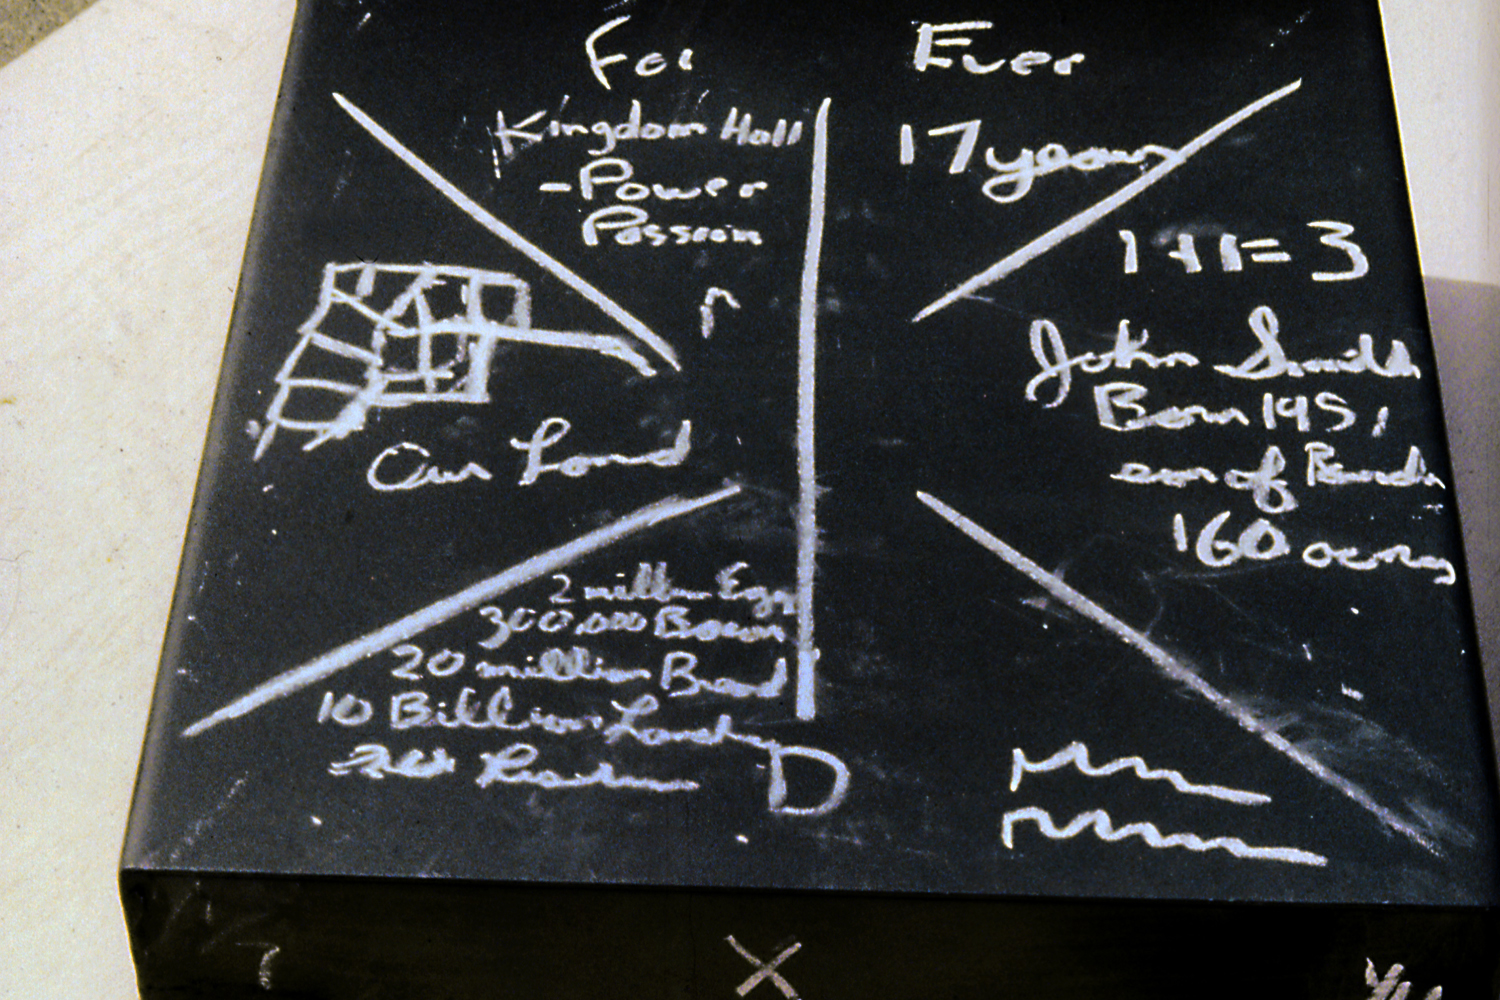 For Ever
Kingdom Hall
- Power
Passion
17 years
1+1=3
John Smith
Born 1951
son of
160 acres
Our Land
2 million Eggs
300,000 Bacon
20 million Bread
10 Billion
D
X